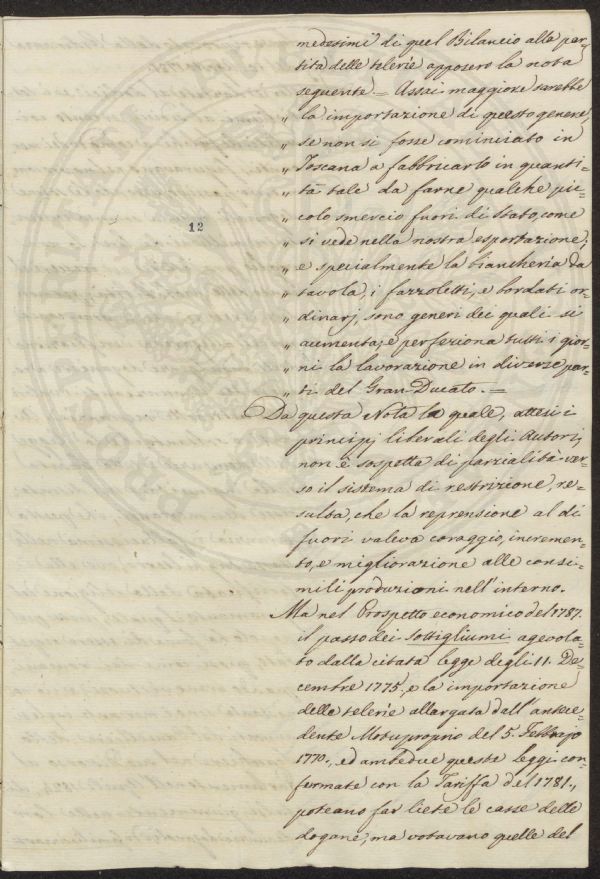 medesimi di quel Bilancio alla par=
tita delle telerie apposero la nota
seguente = Assai maggiore sarebbe
" la importazione di questo genere,
" se non si fosse cominciato in
" Toscana a fabbricarlo in quanti=
" tà tale da farne qualche pic=
" colo smercio fuori di Stato, come
" si vede nella nostra esportazione;
" e specialmente la biancheria da
" tavola, i fazzoletti, e bordati or=
" dinarj, sono generi dei quali si
" aumenta, e perfeziona tutti i gior=
" ni la lavorazione in diverse par=
" ti del Gran-Ducato. =
12
Da questa Nota la quale, attesi i
principj liberali degli Autori,
non è sospetta di parzialità ver=
so il sistema di restrizione, re=
sulta, che la reprensione al di
fuori valeva coraggio, incremen=
to, e migliorazione alle consi=
mili produzioni nell'interno.
Ma nel Prospetto economico del 1787.
il passo dei Sottigliumi agevola=
to dalla citata legge degli 11. De=
cembre 1775, e la importazione
delle telerie allargata dall'antece=
dente Motuproprio del 5. Febbrajo
1770., ed ambedue queste leggi con=
fermate con la Tariffa del 1781.,
poteano far liete le casse delle
dogane; ma votavano quelle del